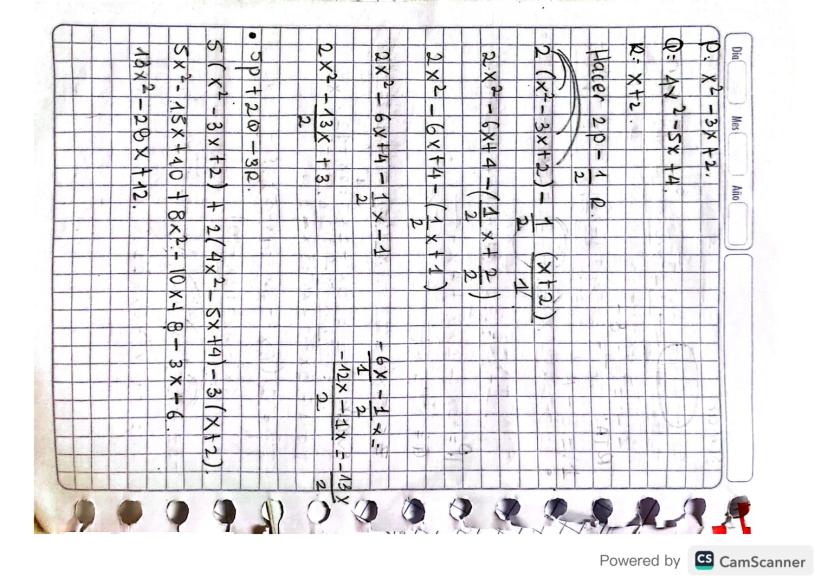 Dia Mes Año
P: x² - 3x + 2.
Q: 4x² - 5x + 4.
R: x + 2.
Hacer 2p - 1/2 R.
2 (x² - 3x + 2) - 1/2 (x+2)/1
2x² - 6x + 4 - (1/2 x + 2/2)
2x² - 6x + 4 - (1/2 x + 1)
2x² - 6x + 4 - 1/2 x - 1
-6x/1 - 1/2 x =
-12x - 1x/2 = -13x/2
2x² - 13x/2 + 3.
• 5p + 2Q - 3R.
5 (x² - 3x + 2) + 2(4x² - 5x + 4) - 3 (x + 2).
5x² - 15x + 10 + 8x² - 10x + 8 - 3x - 6.
13x² - 28x + 12.
Powered by CS CamScanner